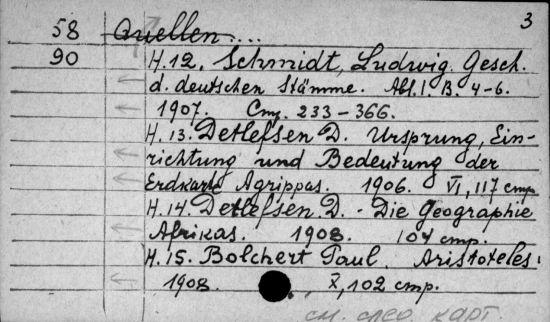 3
58 Quellen....
90 H.12. Schmidt, Ludwig. Gesch.
d. deutschen Stämme. Abt. I. B. 4-6.
1907. Стр. 233-366.
H.13. Detlefsen D. Ursprung, Ein-
richtung und Bedeutung der
Erdkarte Agrippas. 1906. VI, 117 стр.
H.14. Detlefsen D. - Die Geographie
Afrikas. 1908. 104 стр.
H.15. Bolchert Paul. Aristoteles:
1908. X, 102 стр.
см. след. карт.